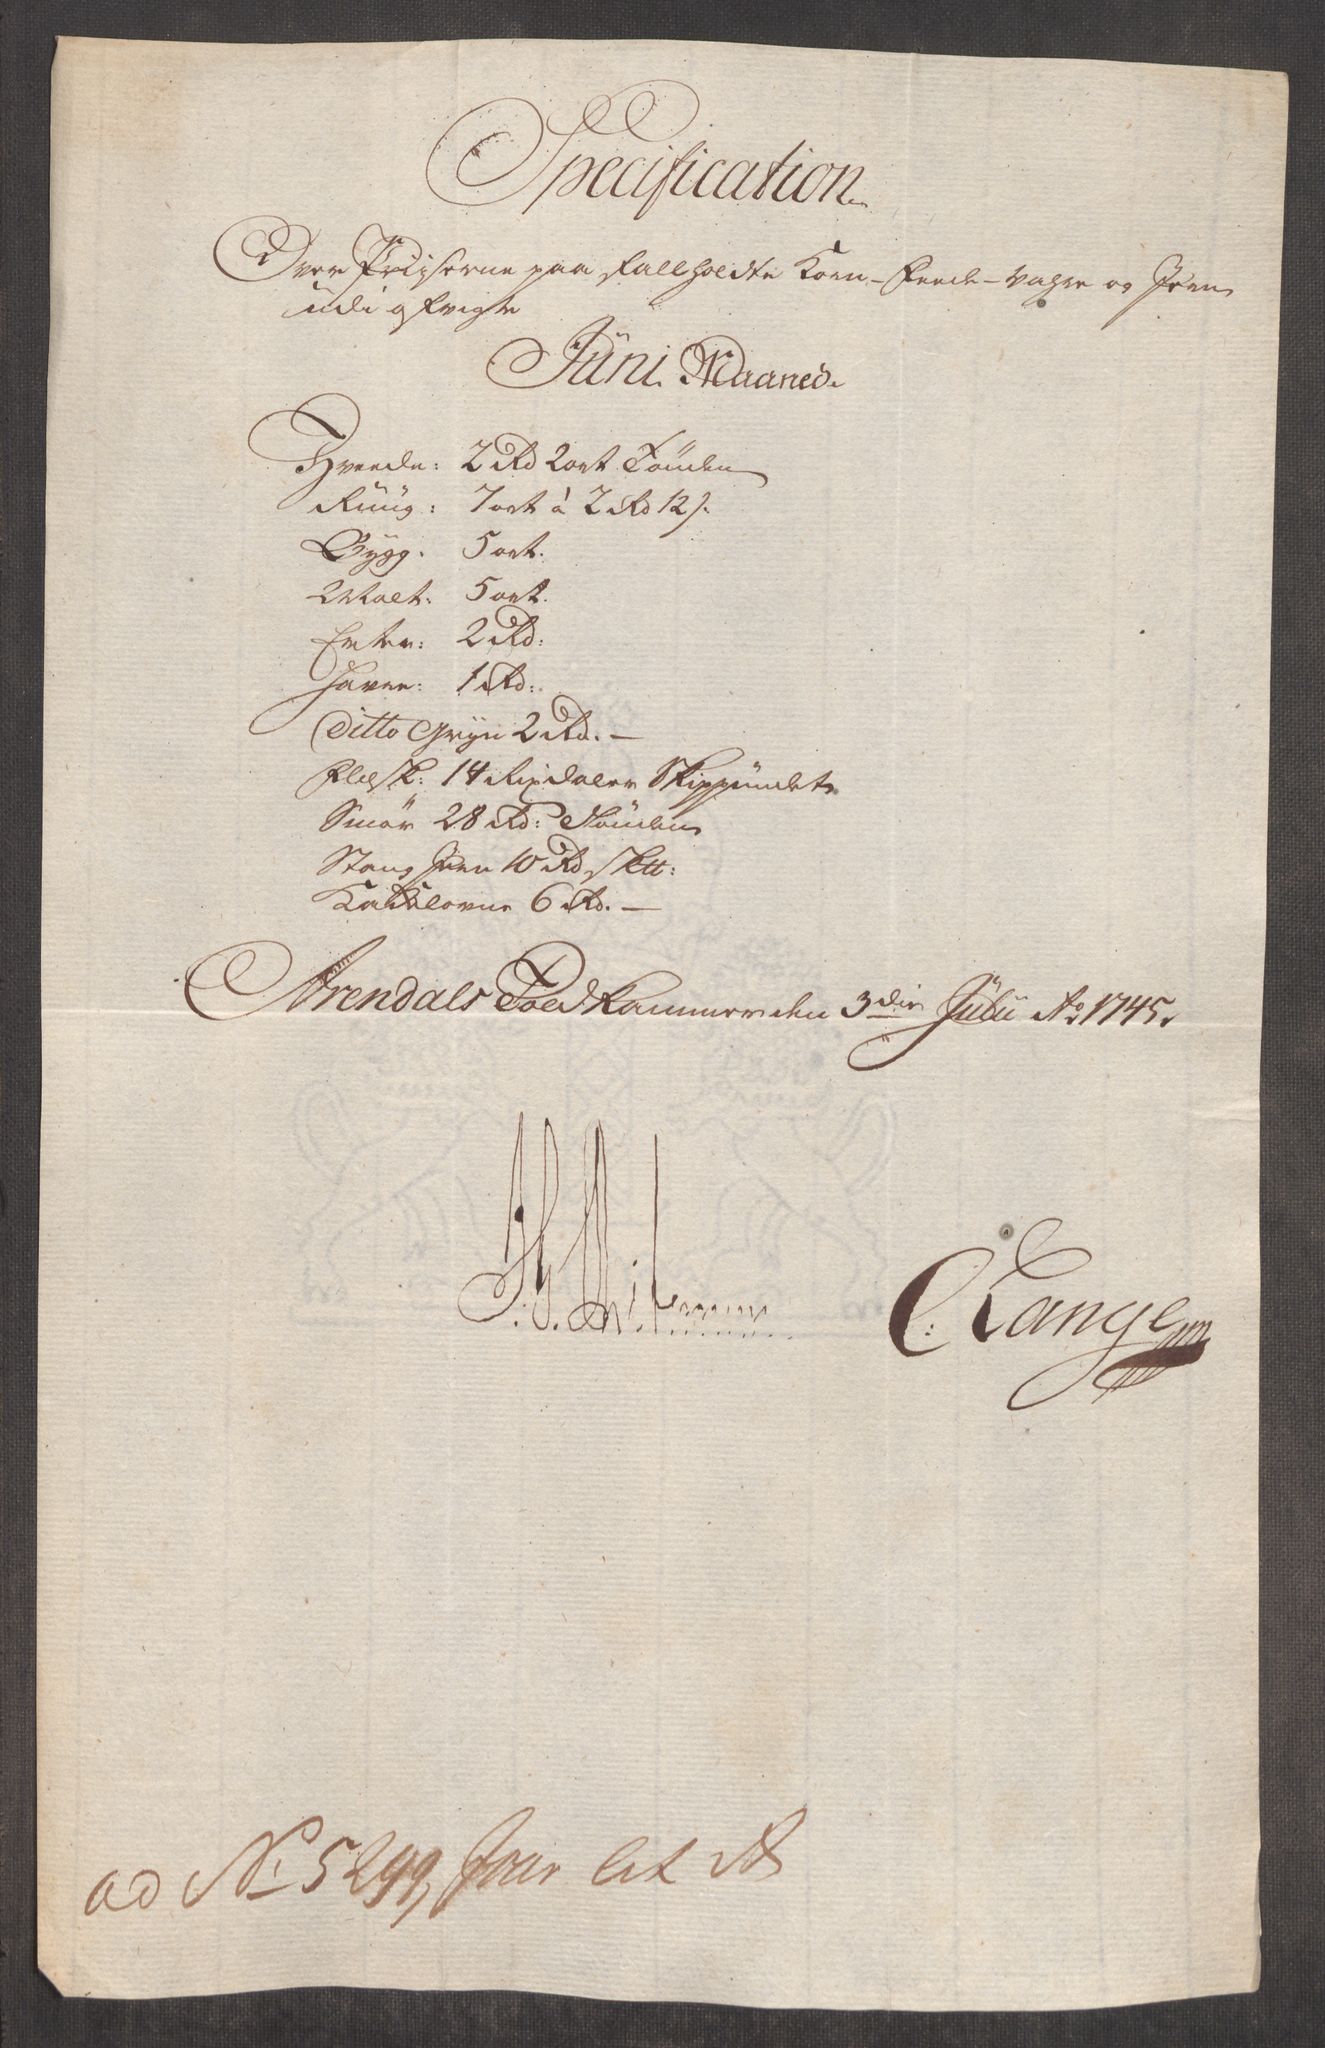 Specification
Over Priiserne paa falholdte Korn- Feede- vahre og Jern
udi afvigte
Jüni Maaned.
Hveede: 2 Rd 2 ort Tönden
Rüüg: 7 ort à 2 Rd 12 s.
Bÿgg. 5 ort.
Malt: 5 ort.
Erter: 2 Rd:
Havre: 1 Rd:
Ditto Grÿn 2 Rd. —
Flesk: 14 Rixdaler Skippündet
Smör 28 Rd: Tönden
Stang Jern 10 Rd sktt:
Kakelovne 6 Rd. —
Arendals Toldkammer den 3die Jülii Ao 1745.
C. Lange
ad No 5299, Jour lit A